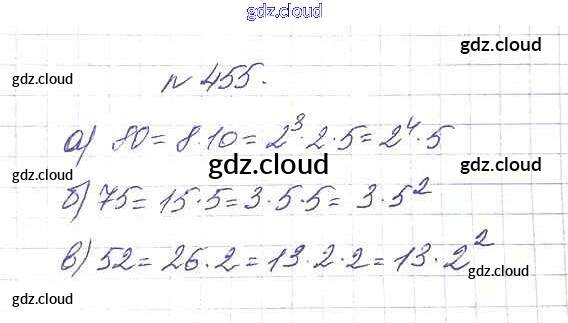 gdz.cloud
gdz.cloud
gdz.cloud
№ 455.
а) 80 = 8·10 = 2³·2·5 = 2⁴·5
gdz.cloud
б) 75 = 15·5 = 3·5·5 = 3·5²
в) 52 = 26·2 = 13·2·2 = 13·2²
gdz.cloud
gdz.cloud